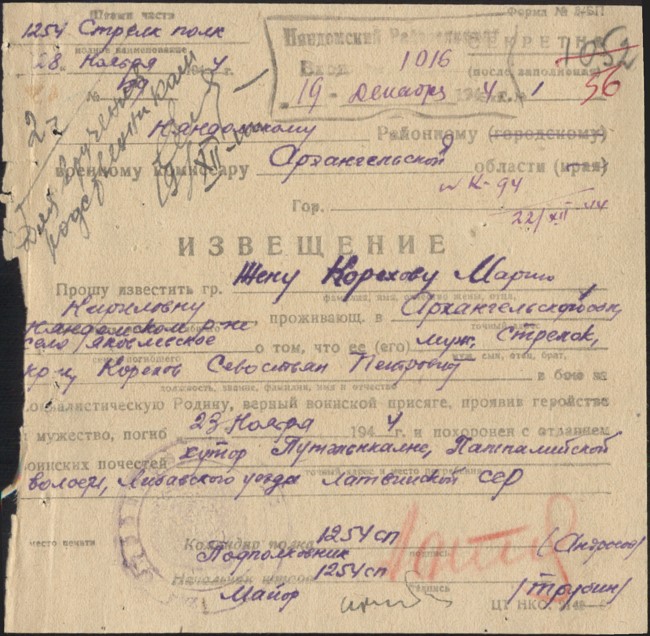 Штамп части
Форма №
1254 Стрелк полк
полное наименование
28 Ноября 1944 г.
№
Няндомский
Вход 1016
19 Декабря 1944 г.
СЕКРЕТНО
(после заполнения)
1
1052
56
2
Для вручения
родственникам
19/XII-44
Няндомскому Районному (городскому)
военному комиссару Архангельской области (края)
Гор.
К-94
22/XII-44
ИЗВЕЩЕНИЕ
Прошу известить гр. Жену Корехову Марию
фамилия, имя, отчество жены, отца,
Кириловну проживающ. в Архангельской обл,
Няндомском р-не
точный адрес
село о том, что ее (его) муж, Стрелок,
муж, сын, отец, брат,
кр-ц Корехов Севостьян Петрович в бою за
должность, звание, фамилия, имя и отчество
социалистическую Родину, верный воинской присяге, проявив геройство
и мужество, погиб 23 Ноября 1944 г. и похоронен с отданием
воинских почестей хутор
точный адрес и место погребения
волости, Либавского уезда Латвийской ССР
место печати
Командир полка 1254 сп
Подполковник
подпись
(Андросов)
Начальник штаба 1254 сп
Майор
подпись
/Трубин/
ЦТ НКО.